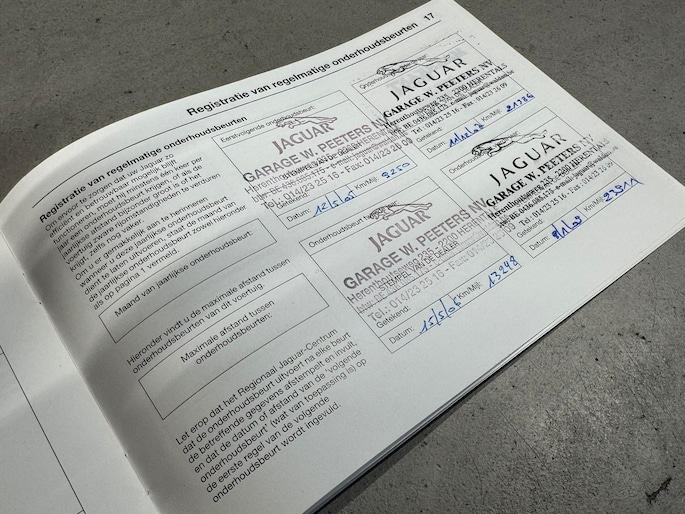 17
Registratie van regelmatige onderhoudsbeurten
Registratie van regelmatige onderhoudsbeurten
Om ervoor te zorgen dat uw Jaguar zo
efficiënt en betrouwbaar mogelijk blijft
functioneren, moet hij minstens één keer per
jaar een onderhoudsbeurt krijgen of als de
jaarlijkse afstand bijzonder groot is of het
voertuig zware rijomstandigheden te verduren
krijgt, zelfs nog vaker.
Om u er gemakkelijk aan te herinneren
wanneer u deze jaarlijkse onderhoudsbeurt
dient te laten uitvoeren, staat de maand van
de jaarlijkse onderhoudsbeurt zowel hieronder
als op pagina 1 vermeld.
Maand van jaarlijkse onderhoudsbeurt:
Hieronder vindt u de maximale afstand tussen
onderhoudsbeurten van dit voertuig.
Maximale afstand tussen
onderhoudsbeurten:
Let erop dat het Regionaal Jaguar-Centrum
dat de onderhoudsbeurt uitvoert na elke beurt
de betreffende gegevens afstempelt en invult,
en dat de datum of afstand van de 'volgende
onderhoudsbeurt' (wat van toepassing is) op
de eerste regel van de volgende
onderhoudsbeurt wordt ingevuld.
Eerstvolgende onderhoudsbeurt:
JAGUAR
GARAGE W. PEETERS NV
STEMPEL VAN DE DEALER
Tel.: 014/23 25 16 - Fax: 014/23
Getekend:
Datum: 12/5/05 Km/Mijl: 9250
Onderhoudsbeurt:
JAGUAR
GARAGE W. PEETERS NV
Herenthoutseweg 235, 2200 HERENTALS
STEMPEL VAN DE DEALER
Tel.: 014/23 25 16 - Fax: 014/23
Getekend:
Datum: 15/5/06 Km/Mijl: 13248
JAGUAR
GARAGE W. PEETERS NV
Herenthoutseweg 235, 2200 HERENTALS
Tel.: 014/23 25 16 - Fax: 014/23 26 09
Getekend:
Datum: Km/Mijl: 21786
JAGUAR
GARAGE W. PEETERS NV
Herenthoutseweg 235, 2200 HERENTALS
Tel.: 014/23 25 16 - Fax: 014/23 26 09
Getekend:
Datum: Km/Mijl: 23911